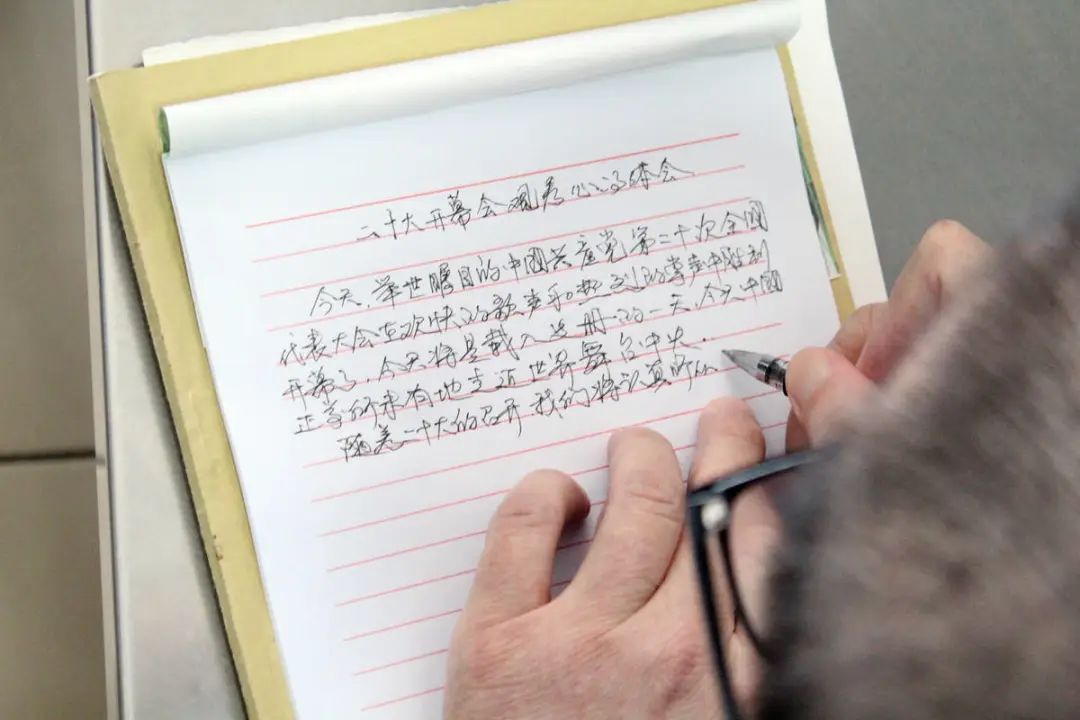 二十大开幕会观看心得体会
今天,举世瞩目的中國共产党第二十次全國
代表大会在欢快的歌声和热烈的掌声中胜利
开幕了,今天将是载入史册的一天,今天中國
正前所未有地走近世界舞台中央.
随着二十大的召开 我们将认真